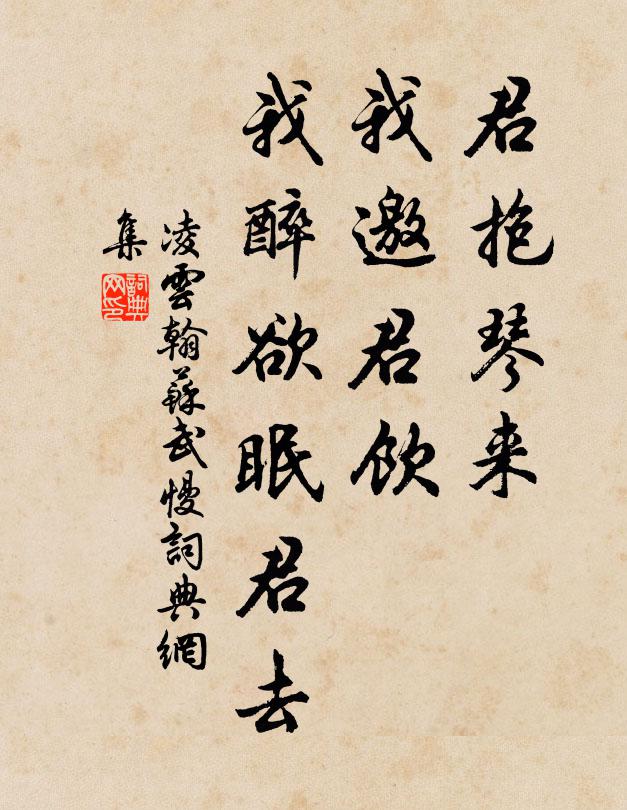 君抱琴来
我邀君饮
我醉欲眠君去
凌雲翰蘇武慢詞典網
集
詞典
网印